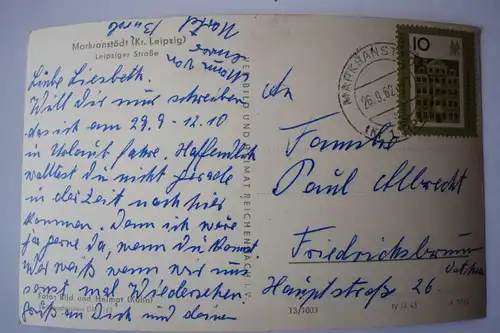 Markranstädt (Kr. Leipzig)
Leipziger Straße
Liebe Liesbeth.
Will Dir nur schreiben
das ich am 29.9 - 12.10
in Urlaub fahre. Hoffendlich
wolltest Du nicht gerade
in der Zeit nach hier
kommen. Denn ich wäre
ja gerne da, wenn Du kommst.
Wer weiß wenn wir uns
sonst mal Wiedersehen.
Gruß an Dich und deine
Foto: Bild und Heimat
VEB BILD UND HEIMAT REICHENBACH I. V.
MARKRANSTÄDT
26.9.62
10
An
Familie
Paul Albrecht
Friedrichsbrunn
Hauptstraße 26.
13/1003
IV-14-45